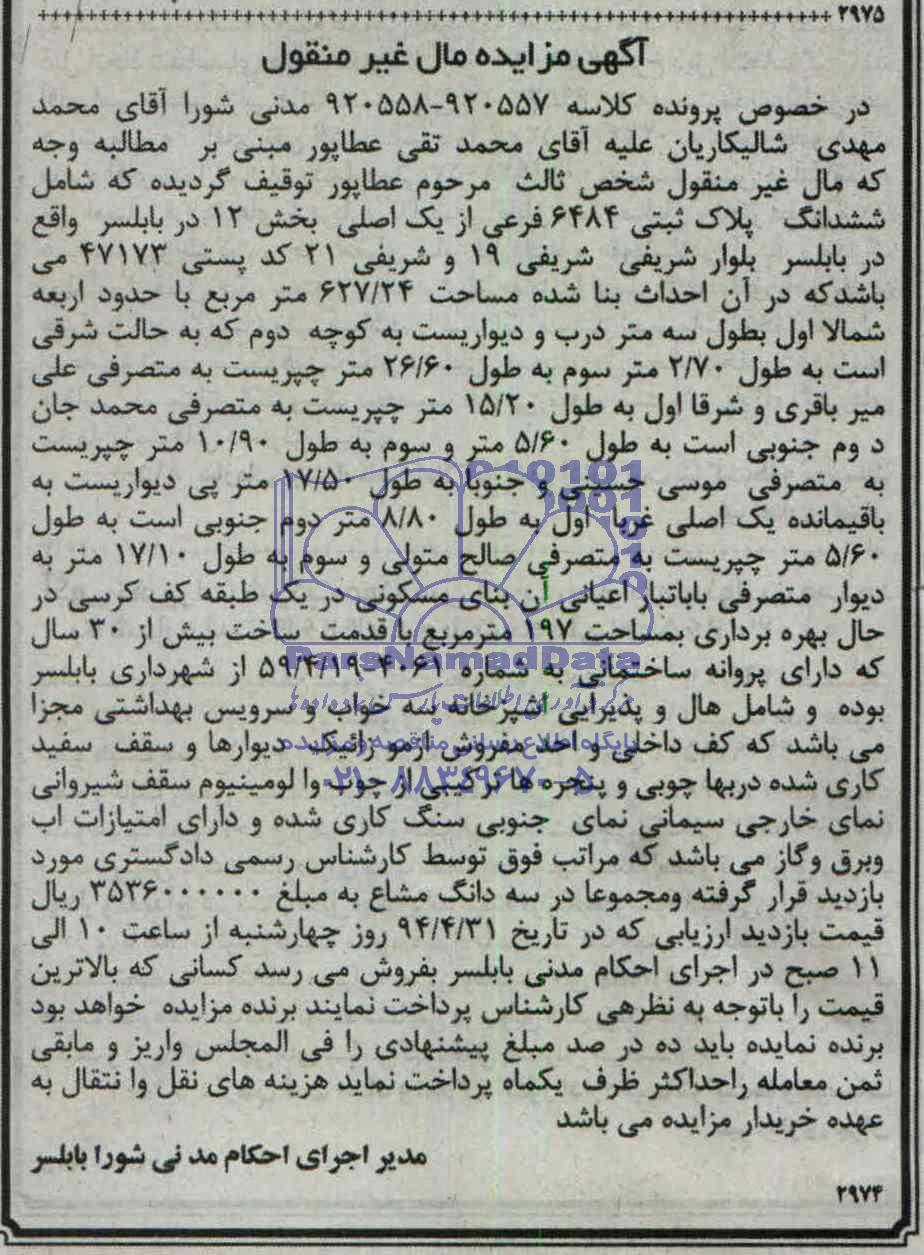 ۲۹۷۵
آگهی مزایده مال غیر منقول
در خصوص پرونده کلاسه ۹۲۰۵۵۷-۹۲۰۵۵۸ مدنی شورا آقای محمد
مهدی شالیکاریان علیه آقای محمد تقی عطاپور مبنی بر مطالبه وجه
که مال غیر منقول شخص ثالث مرحوم عطاپور توقیف گردیده که شامل
ششدانگ پلاک ثبتی ۶۴۸۴ فرعی از یک اصلی بخش ۱۲ در بابلسر واقع
در بابلسر بلوار شریفی شریفی ۱۹ و شریفی ۲۱ کد پستی ۴۷۱۷۳ می
باشدکه در آن احداث بنا شده مساحت ۶۲۷/۲۴ متر مربع با حدود اربعه
شمالا اول بطول سه متر درب و دیواریست به کوچه دوم که به حالت شرقی
است به طول ۲/۷۰ متر سوم به طول ۲۶/۶۰ متر چپریست به متصرفی علی
میر باقری و شرقا اول به طول ۱۵/۲۰ متر چپریست به متصرفی محمد جان
د وم جنوبی است به طول ۵/۶۰ متر و سوم به طول ۱۰/۹۰ متر چپریست
به متصرفی موسی حسینی و جنوبا به طول ۱۷/۵۰ متر پی دیواریست به
باقیمانده یک اصلی غربا اول به طول ۸/۸۰ متر دوم جنوبی است به طول
۵/۶۰ متر چپریست به متصرفی صالح متولی و سوم به طول ۱۷/۱۰ متر به
دیوار متصرفی باباتبار اعیانی آن بنای مسکونی در یک طبقه کف کرسی در
حال بهره برداری بمساحت ۱۹۷ مترمربع با قدمت ساخت بیش از ۳۰ سال
که دارای پروانه ساختمانی به شماره ۴۰۶۱-۵۹/۴/۱۹ از شهرداری بابلسر
بوده و شامل هال و پذیرایی اشپزخانه سه خواب و سرویس بهداشتی مجزا
می باشد که کف داخلی و احد مفروش ازمو زائیک دیوارها و سقف سفید
کاری شده دربها چوبی و پنجره ها ترکیبی از چوب وا لومینیوم سقف شیروانی
نمای خارجی سیمانی نمای جنوبی سنگ کاری شده و دارای امتیازات اب
وبرق وگاز می باشد که مراتب فوق توسط کارشناس رسمی دادگستری مورد
بازدید قرار گرفته ومجموعا در سه دانگ مشاع به مبلغ ۳۵۳۶۰۰۰۰۰۰ ریال
قیمت بازدید ارزیابی که در تاریخ ۹۴/۴/۳۱ روز چهارشنبه از ساعت ۱۰ الی
۱۱ صبح در اجرای احکام مدنی بابلسر بفروش می رسد کسانی که بالاترین
قیمت را باتوجه به نظرهی کارشناس پرداخت نمایند برنده مزایده خواهد بود
برنده نمایده باید ده در صد مبلغ پیشنهادی را فی المجلس واریز و مابقی
ثمن معامله راحداکثر ظرف یکماه پرداخت نماید هزینه های نقل وا نتقال به
عهده خریدار مزایده می باشد
مدیر اجرای احکام مد نی شورا بابلسر
۲۹۷۴
ParsNamadData
پایگاه اطلاع رسانی مناقصه و مزایده
۰۲۱-۸۸۳۴۹۶۷۰-۵